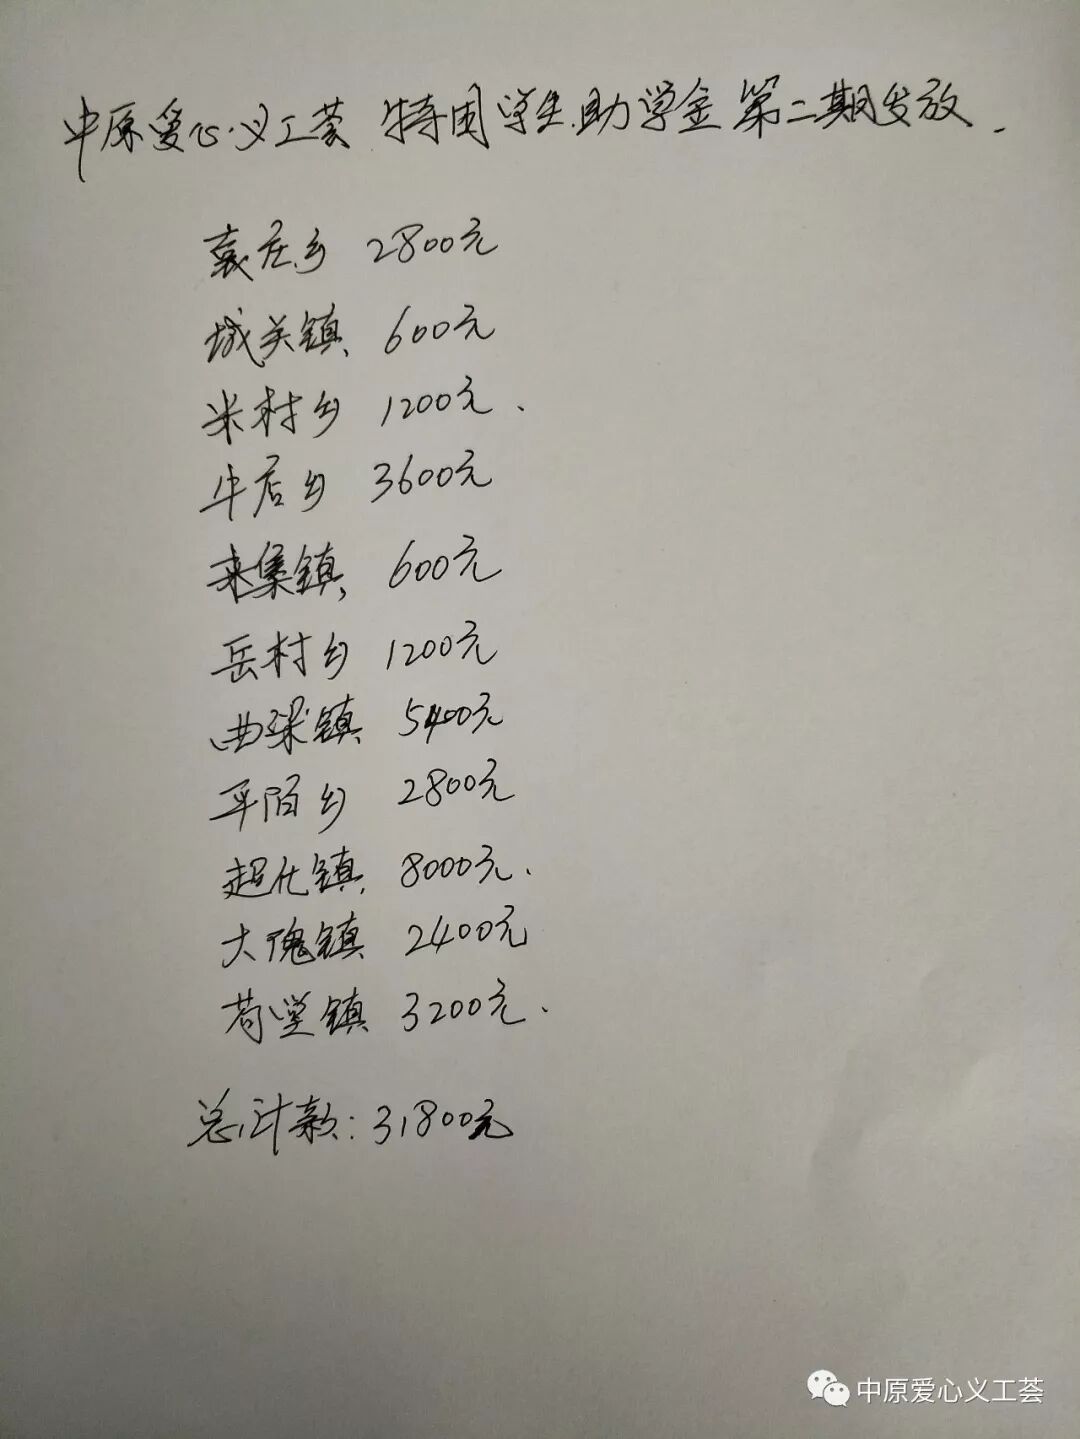 中原爱心义工荟 特困学生助学金第二期发放.
袁庄乡 2800元
城关镇 600元
米村乡 1200元.
牛店乡 3600元
来集镇 600元
岳村乡 1200元
曲梁镇 5400元
平陌乡 2800元
超化镇 8000元.
大隗镇 2400元
苟堂镇 3200元.
总计款: 31800元
中原爱心义工荟